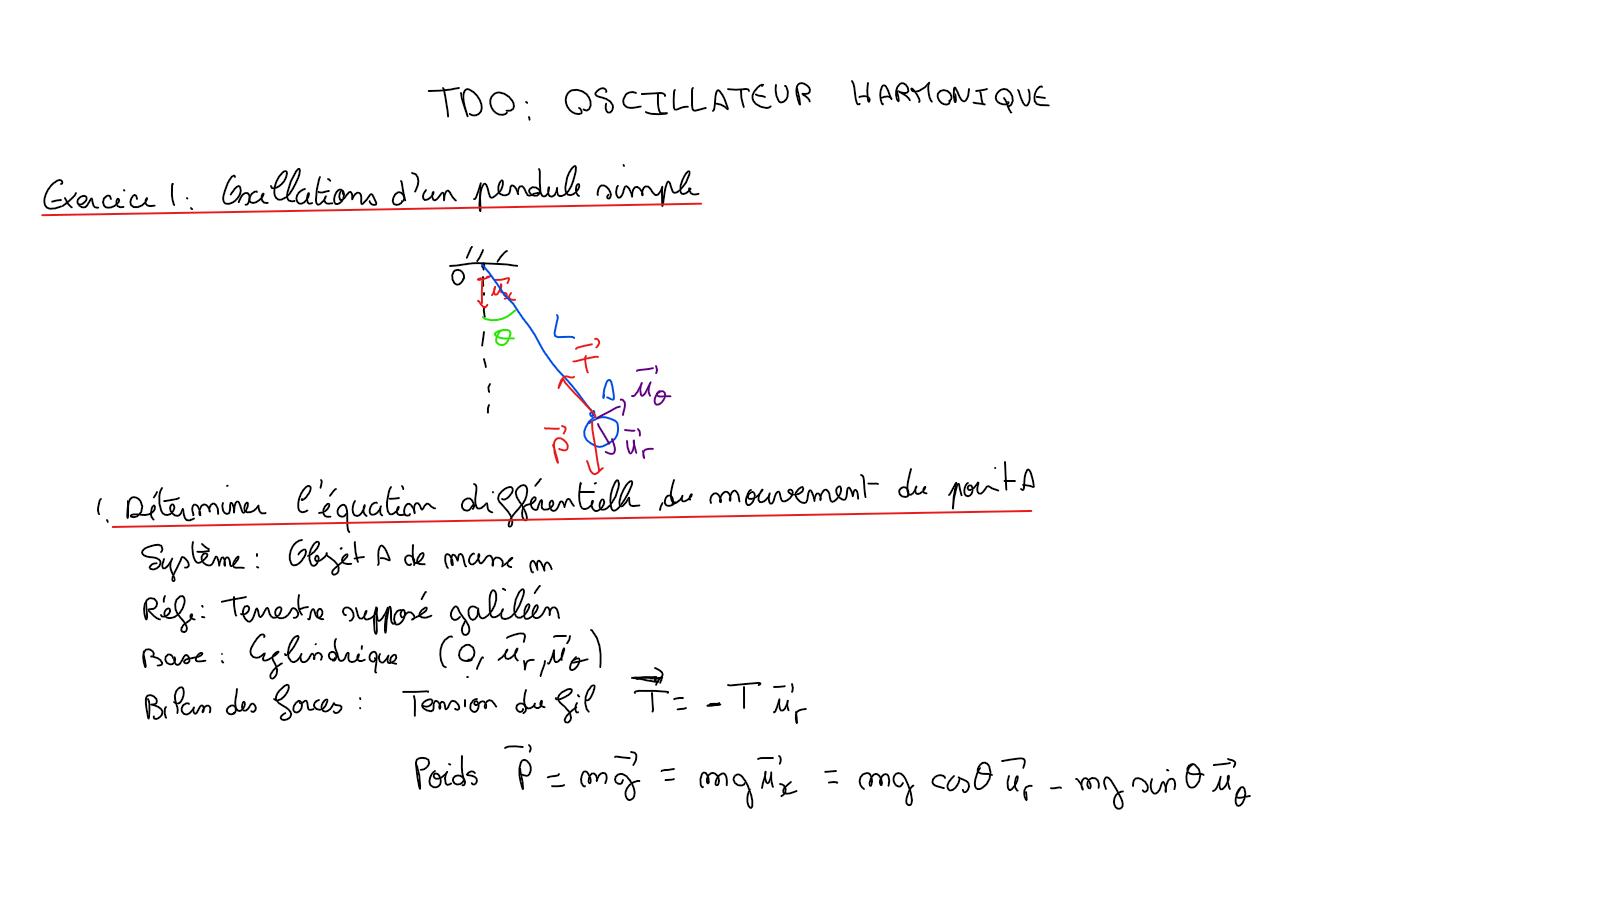 TD0: OSCILLATEUR HARMONIQUE
Exercice 1: Oscillations d'un pendule simple
O
u⃗x
θ
L
T⃗
A
u⃗θ
P⃗
u⃗r
1. Déterminer l'équation différentielle du mouvement du point A
Système : Objet A de masse m
Réf: Terrestre supposé galiléen
Base : Cylindrique (O, u⃗r, u⃗θ)
Bilan des forces : Tension du fil T⃗ = - T u⃗r
Poids P⃗ = mg⃗ = mg u⃗x = mg cosθ u⃗r - mg sinθ u⃗θ